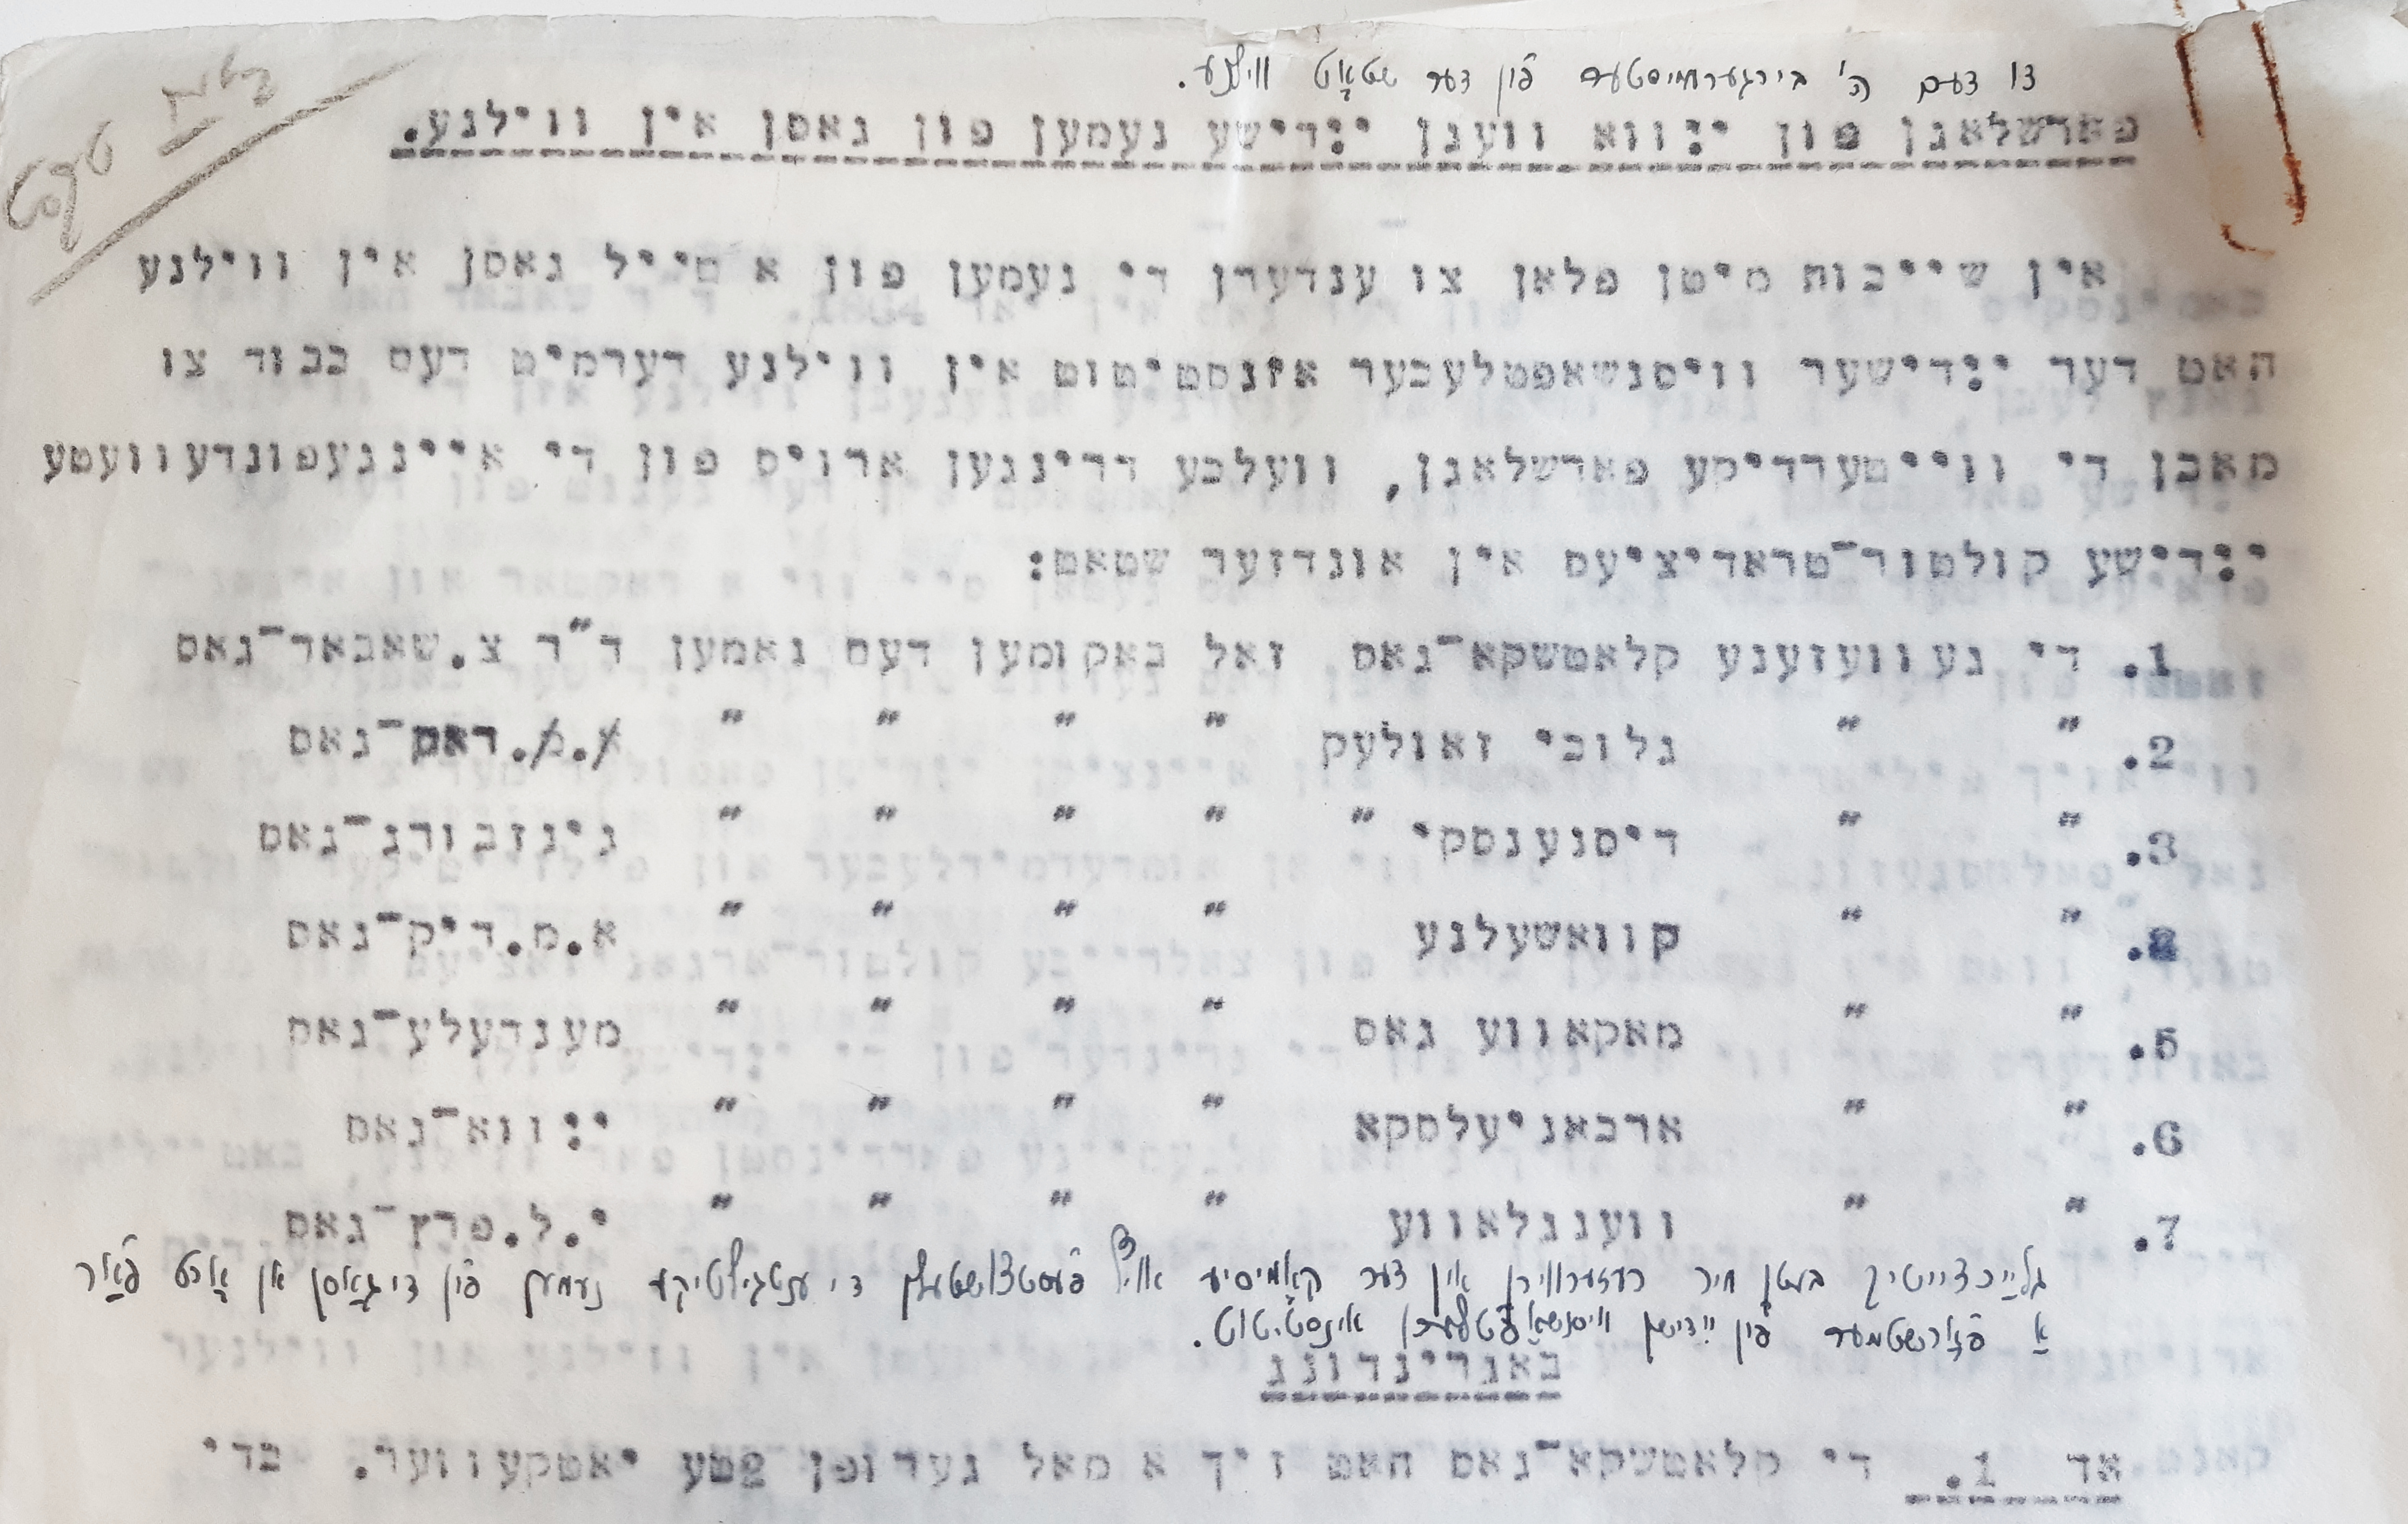 צו דעם ה' בירגערמייסטער פֿון דער שטאָט ווילנע.
פארשלאגן פון ייִווא וועגן ייִדישע נעמען פון גאסן אין ווילנע.
אין שייכות מיטן פלאן צו ענדערן די נעמען פון א טייל גאסן אין ווילנע
האט דער ייִדישער וויסנשאפטלעכער אינסטיטוט אין ווילנע דערמיט דעם כבוד צו
מאכן די ווייטערדיקע פארשלאגן, וועלכע דרינגען ארויס פון די איינגעפונדעוועטע
ייִדישע קולטור־טראדיציעס אין אונדזער שטאט:
1. די געוועזענע קלאטשקא־גאס זאל באקומען דעם נאמען ד"ר צ.שאבאד־גאס
2. " " גלוכי זאולעק " " " " א.מ.ראם־גאס
3. " " דיסנענסקי " " " " " גינזבורג־גאס
" " קוואשעלנע " " " " א.מ.דיק־גאס
5. " " מאקאווע גאס " " " " מענדעלע־גאס
6. " " ארכאניעלסקא " " " " ייִווא־גאס
7. " " ווענגלאווע " " " " י.ל.פרץ־גאס
גלײַכצייטיק בעטן מיר רעזערווירן אין דער קאָמיסיע אויף פֿעסטצושטעלן די ענטגילטיקע נעמען פֿון די גאַסן אן אָרט פֿאַר
אַ פֿאָרשטייער פֿון ייִדישן וויסנשאַפֿטלעכן אינסטיטוט.
באגרינדונג
אד 1. די קלאטשקא־גאס האט זיך א מאל גערופן 2טע יאטקעווער. כדי